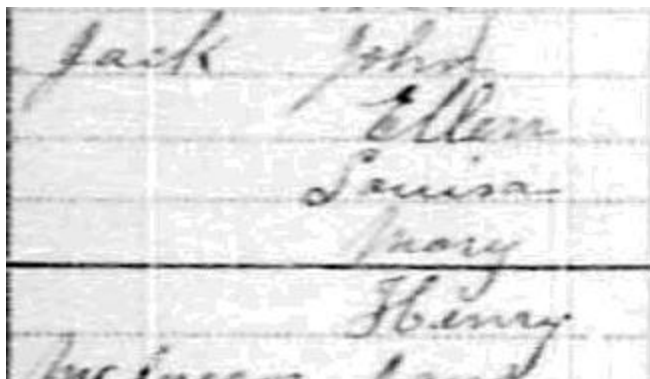 Jack John
Ellen
Louisa
Mary
Henry